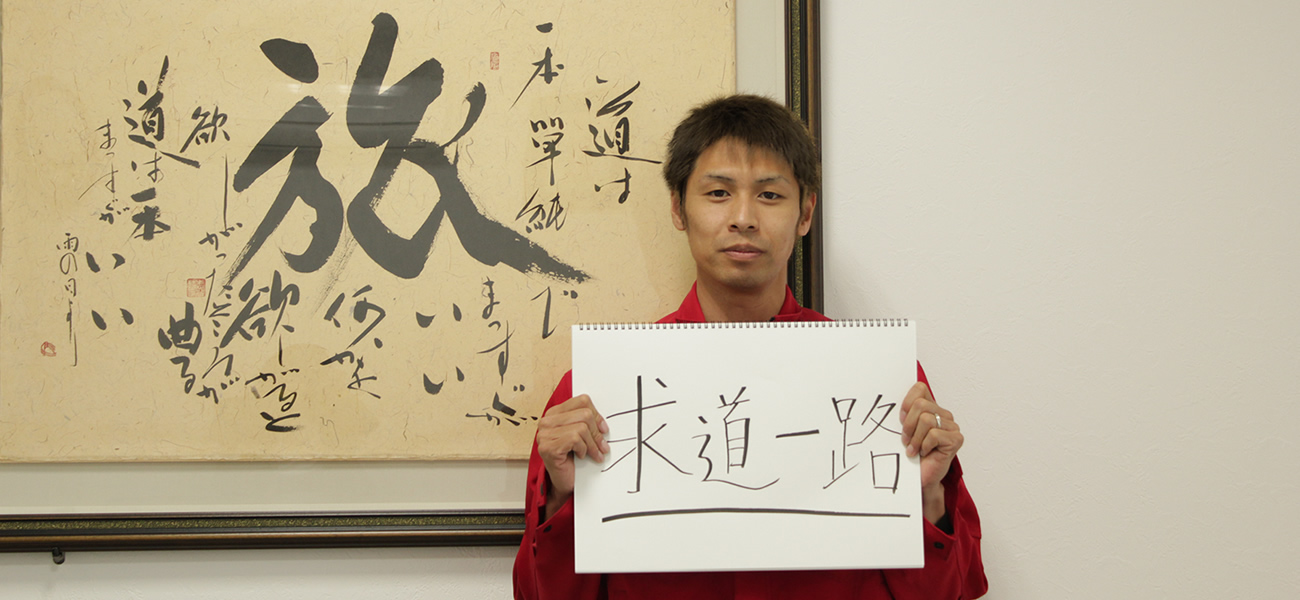 道は
一本單純
で
まっすぐが
いい
放
何かを
欲しがると
欲しがったところが
曲る
道は一本
まっすぐが
いい
求道一路